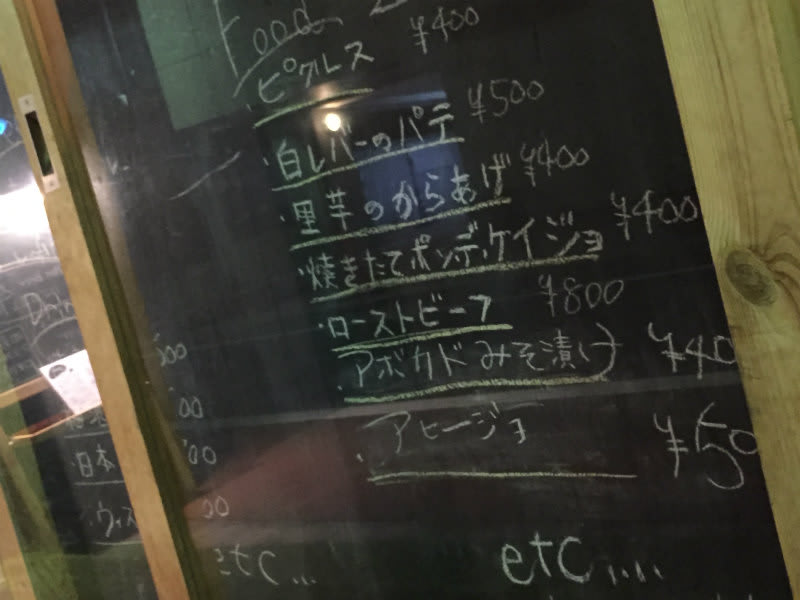 Food
・ピクルス ¥400
・白レバーのパテ ¥500
・里芋のからあげ ¥400
・焼きたてポンデケイジョ ¥400
・ローストビーフ ¥800
・アボカドみそ漬け ¥40
・アヒージョ ¥50
etc....
Drin
00
00
・日本 00
・ウィス 00
etc...